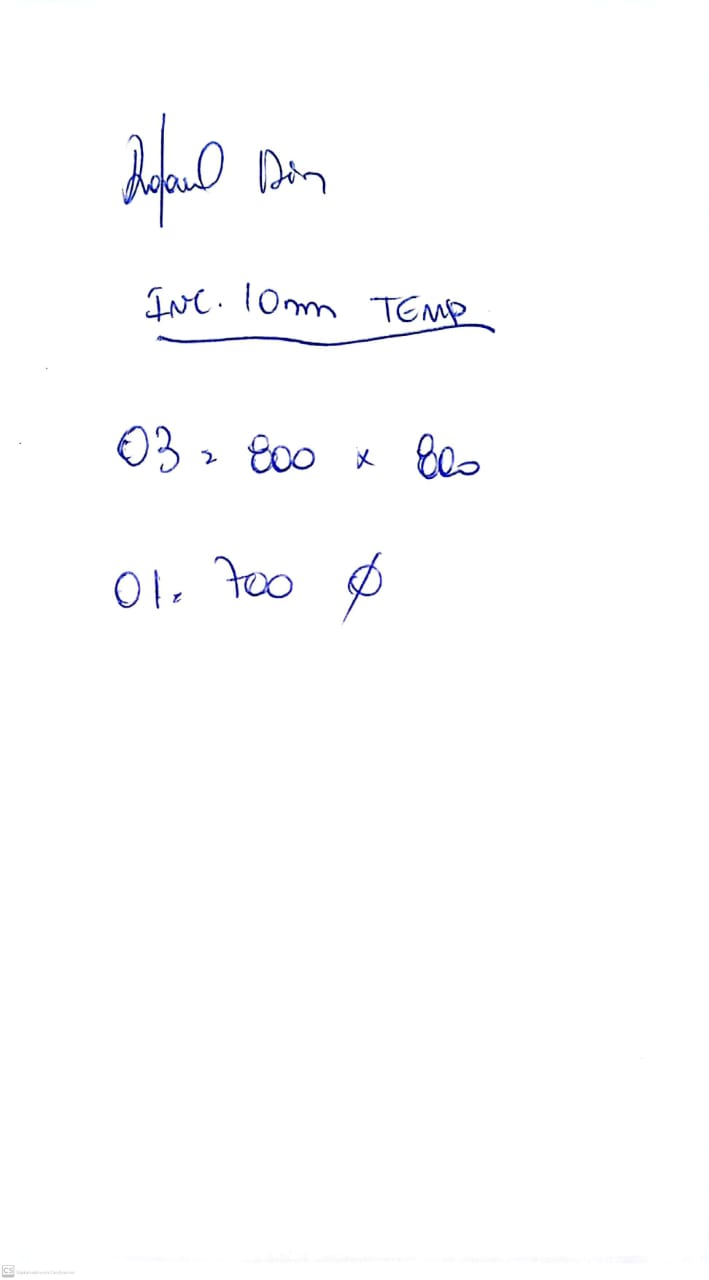 Rafael Din
INC. 10mm TEMP
03 = 800 x 800
01 = 700 Ø
CS